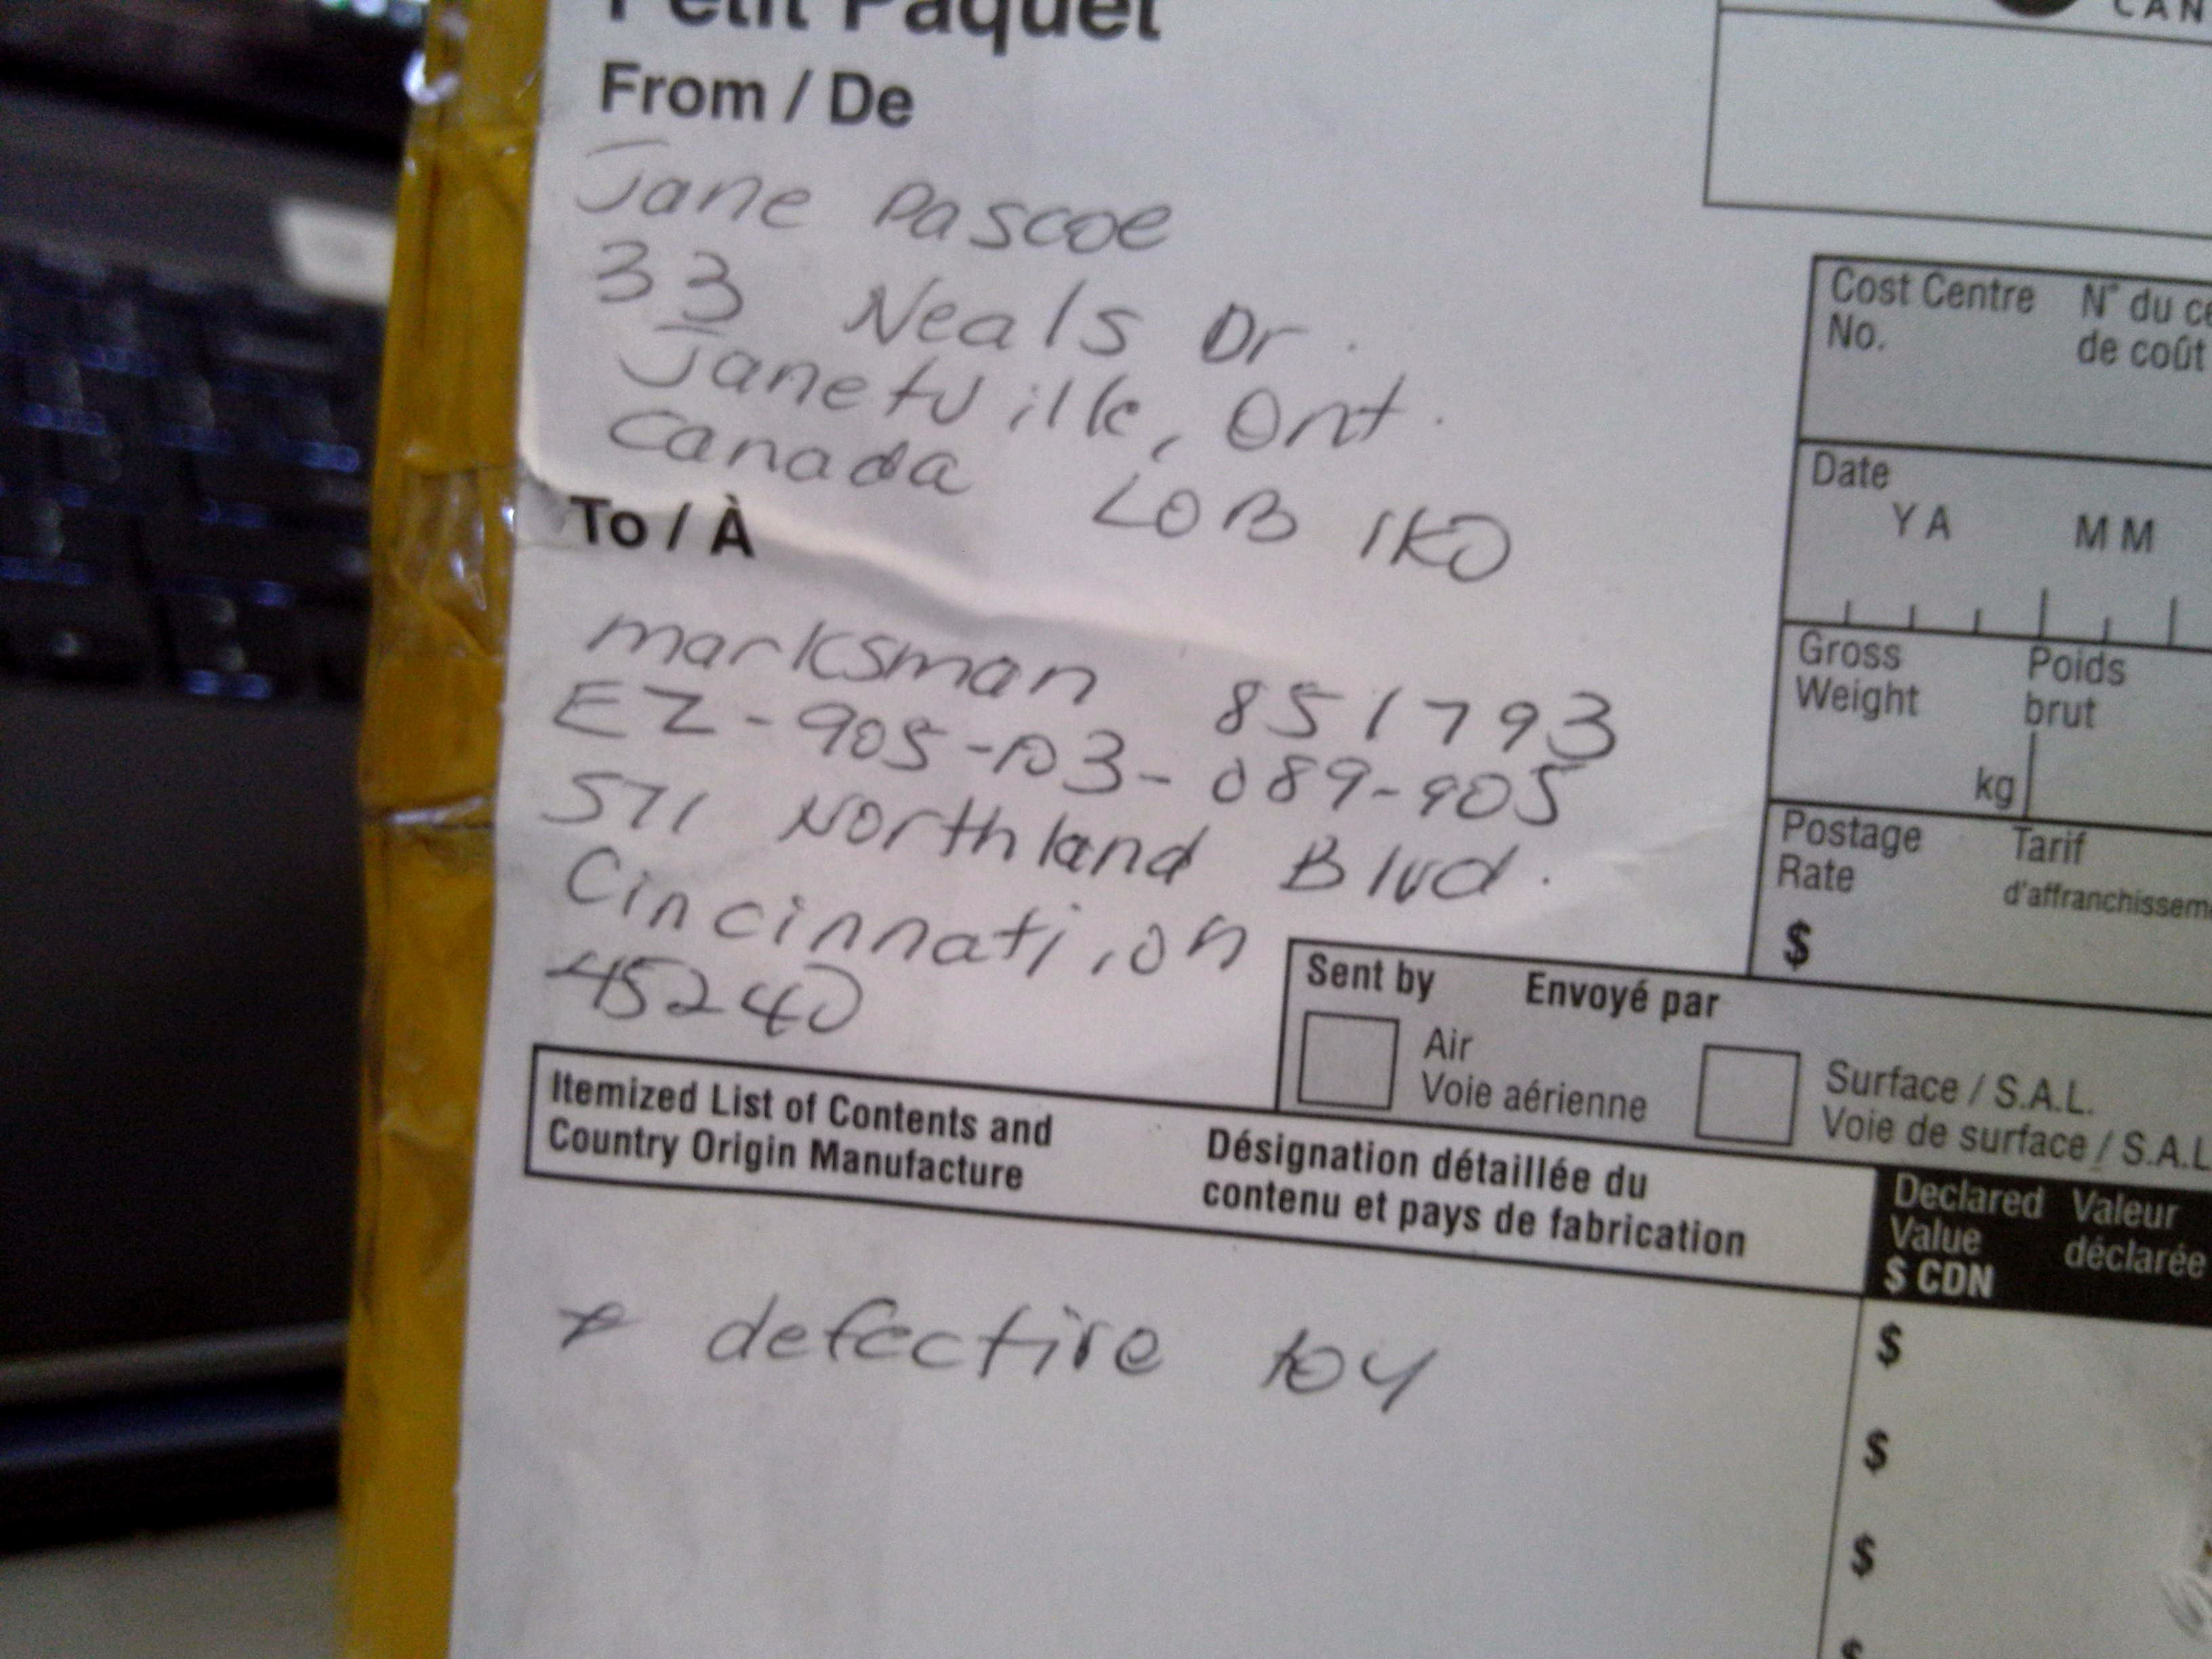 Petit Paquet
CAN
From / De
Jane Pascoe
33 Neals Dr.
Janetville, Ont.
Canada L0B 1K0
To / À
marksman 851793
EZ-905-D3-089-905
571 Northland Blvd.
Cincinnati, Oh
45240
Cost Centre No.
N° du ce
de coût
Date
Y A M M
Gross Weight
Poids brut
kg
Postage Rate
Tarif
d'affranchissem
$
Sent by Envoyé par
Air
Voie aérienne
Surface / S.A.L.
Voie de surface / S.A.L
Itemized List of Contents and
Country Origin Manufacture
Désignation détaillée du
contenu et pays de fabrication
Declared Value $ CDN
Valeur déclarée
* defective toy
$
$
$
$